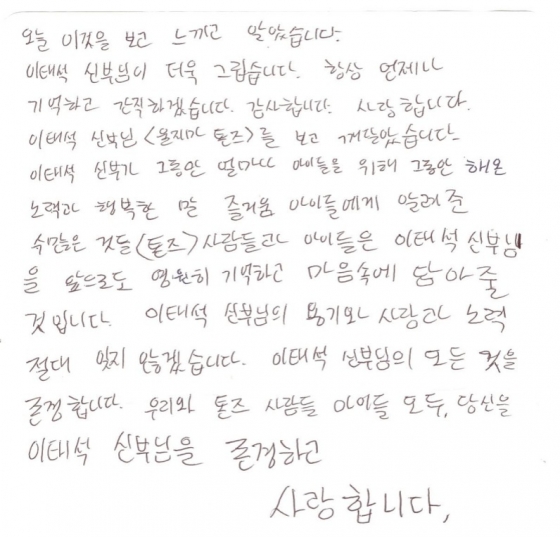 오늘 이것을 보고 느끼고 알았습니다.
이태석 신부님이 더욱 그립습니다. 항상 언제나
기억하고 간직하겠습니다. 감사합니다. 사랑합니다.
이태석 신부님 <울지마 톤즈>를 보고 깨달았습니다.
이태석 신부가 그동안 얼마나 아이들을 위해 그동안 해온
노력과 행복한 말 즐거움 아이들에게 알려준
수많은 것들 <톤즈> 사람들과 아이들은 이태석 신부님
을 앞으로도 영원히 기억하고 마음속에 담아줄
것입니다. 이태석 신부님의 용기와 사랑과 노력
절대 잊지 않겠습니다. 이태석 신부님의 모든 것을
존경합니다. 우리와 톤즈 사람들 아이들 모두, 당신을
이태석 신부님을 존경하고
사랑합니다,